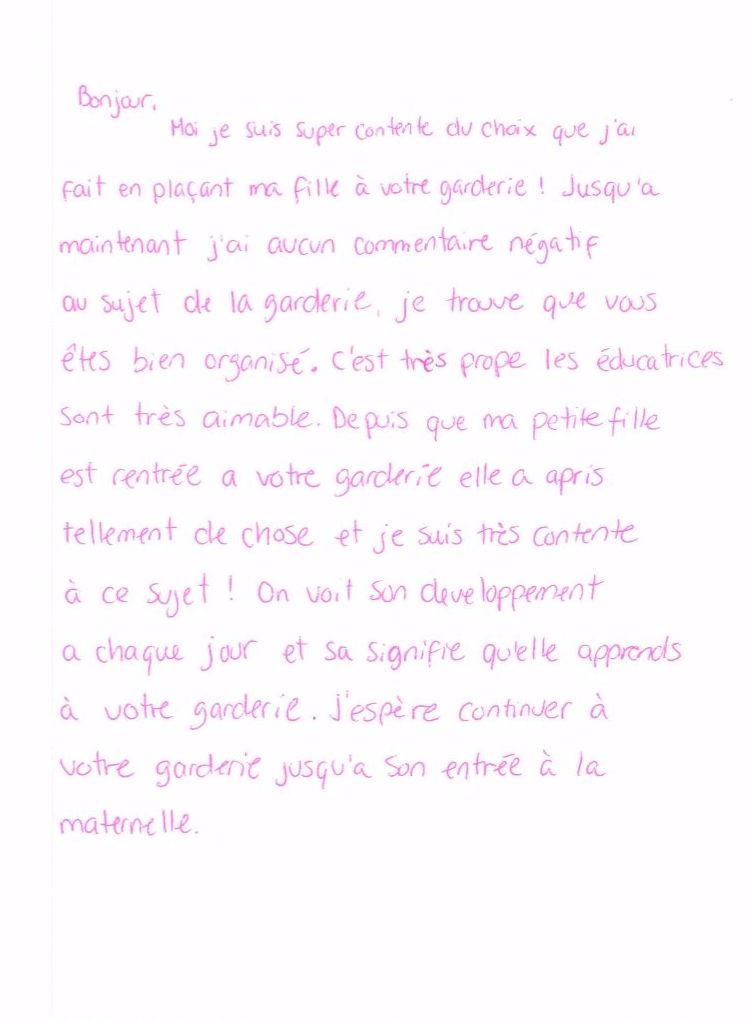 Bonjour,
Moi je suis super contente du choix que j'ai
fait en plaçant ma fille à votre garderie ! Jusqu'a
maintenant j'ai aucun commentaire négatif
au sujet de la garderie, je trouve que vous
êtes bien organisé. C'est très prope les éducatrices
sont très aimable. Depuis que ma petite fille
est rentrée a votre garderie elle a apris
tellement de chose et je suis très contente
à ce sujet ! On voit son developpement
a chaque jour et sa signifie qu'elle apprends
à votre garderie. J'espère continuer à
votre garderie jusqu'a son entrée à la
maternelle.